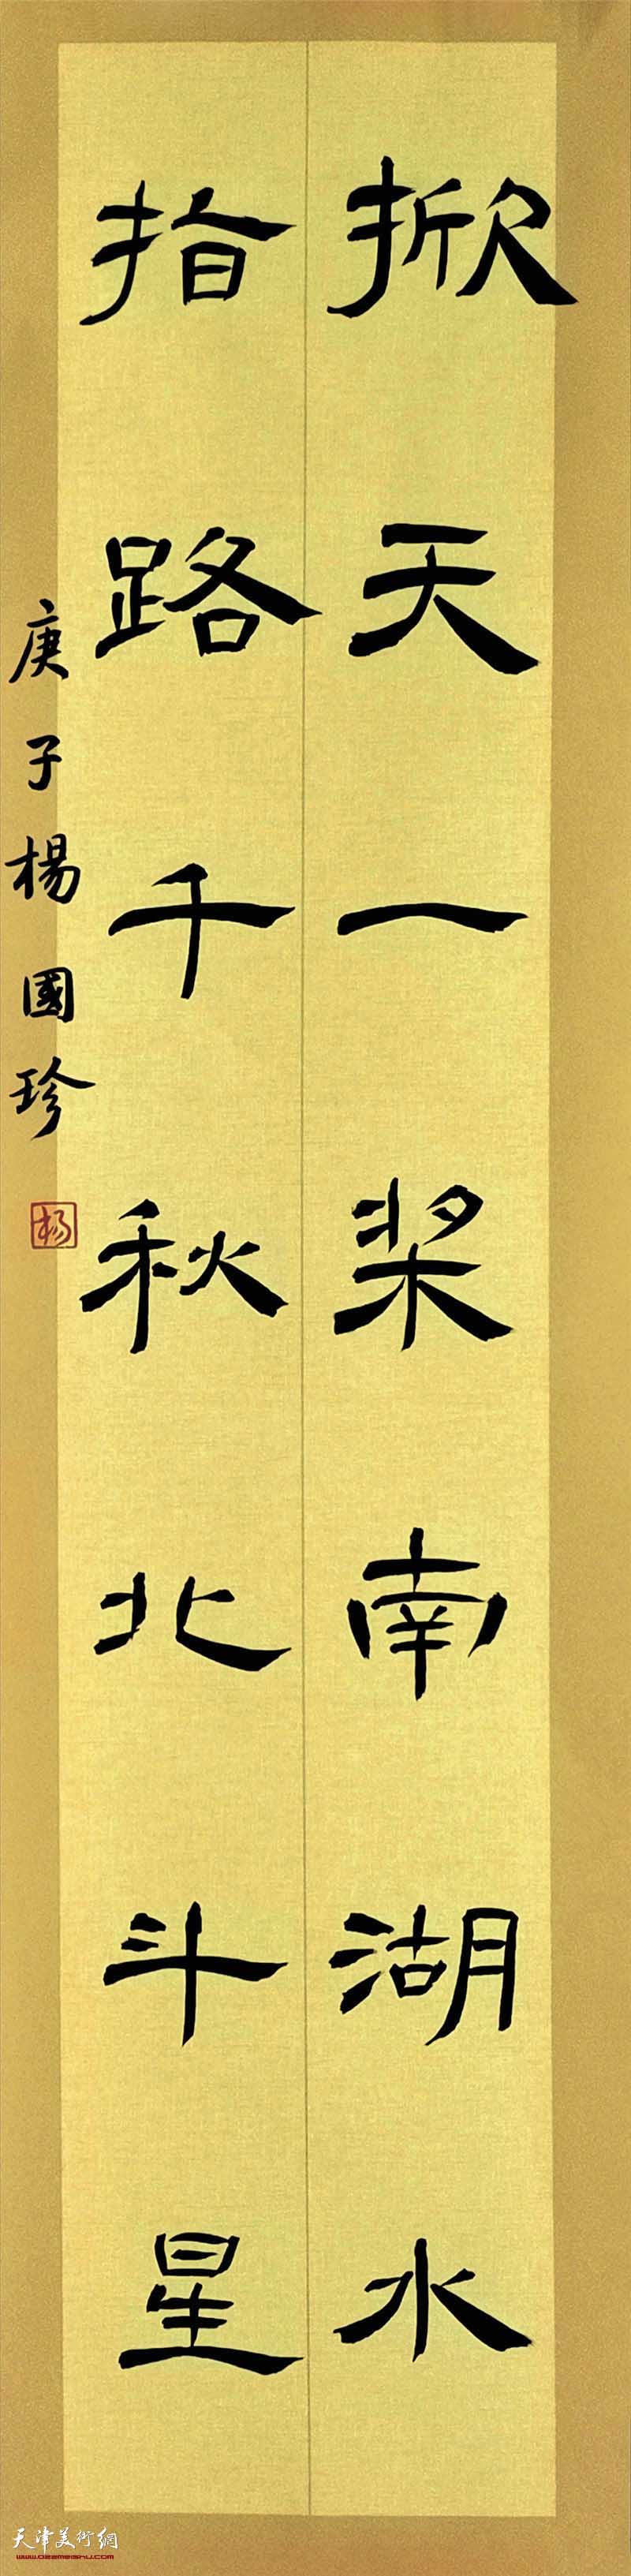 掀天一桨南湖水
指路千秋北斗星
庚子楊國珍
杨
天津美術網
www.022meishu.com